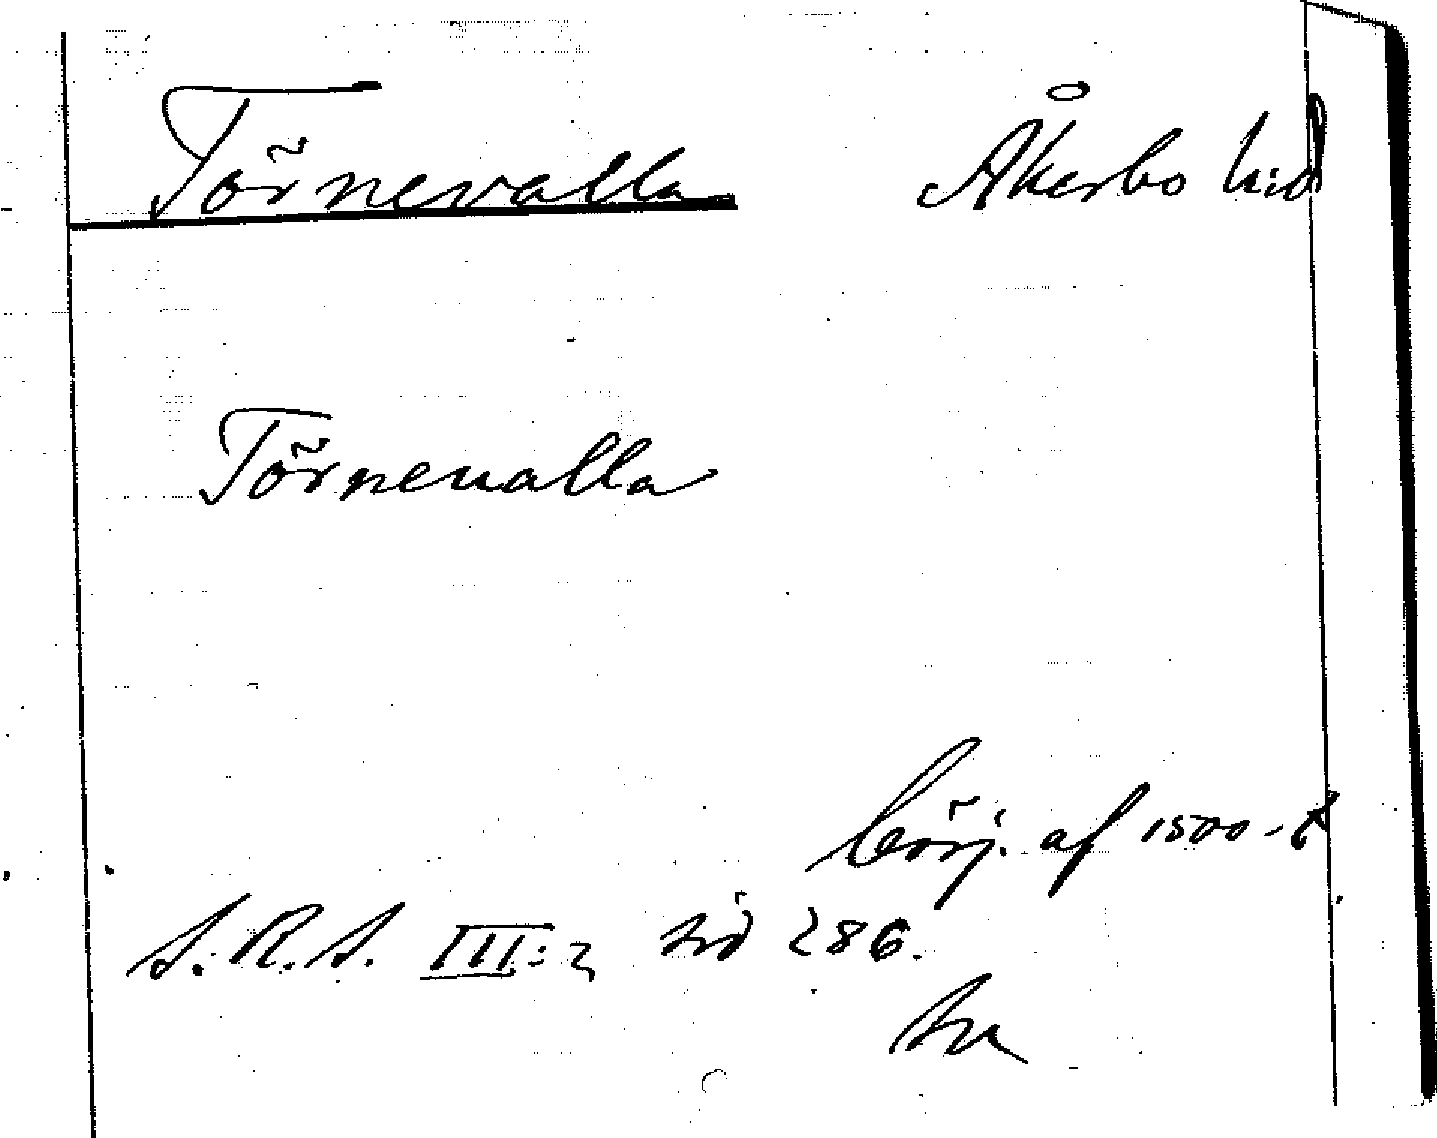 Törnevalla Åkerbo hd
Törneualla
börj. af 1500-t
S.R.S. III:2 sid 286.